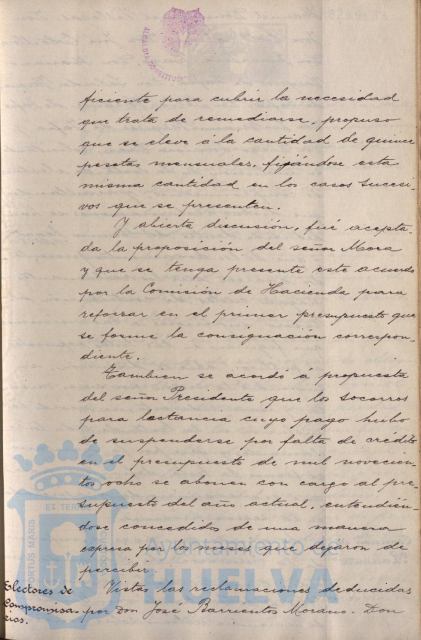 ficiente para cubrir la necesidad
que trata de remediarse, propuso
que se eleve á la cantidad de quince
pesetas mensuales, fijándose esta
misma cantidad en los casos sucesi-
vos que se presenten.
Y abierta discusión, fué acepta-
da la proposición del señor Mora
y que se tenga presente este acuerdo
por la Comisión de Hacienda para
reforzar en el primer presupuesto que
se forme la consignación correspon-
diente.
Tambien se acordó á propuesta
del señor Presidente que los socorros
para lactancia cuyo pago hubo
de suspenderse por falta de crédito
en el presupuesto de mil novecien-
tos ocho se abonen con cargo al pre-
supuesto del año actual, entendién-
dose concedidos de una manera
expresa por los meses que dejaron de
percibir.
Electores de
Compromisa-
rios.
Vistas las reclamaciones deducidas
por Don José Barrientos Morano. Don
Ayuntamiento de
HUELVA